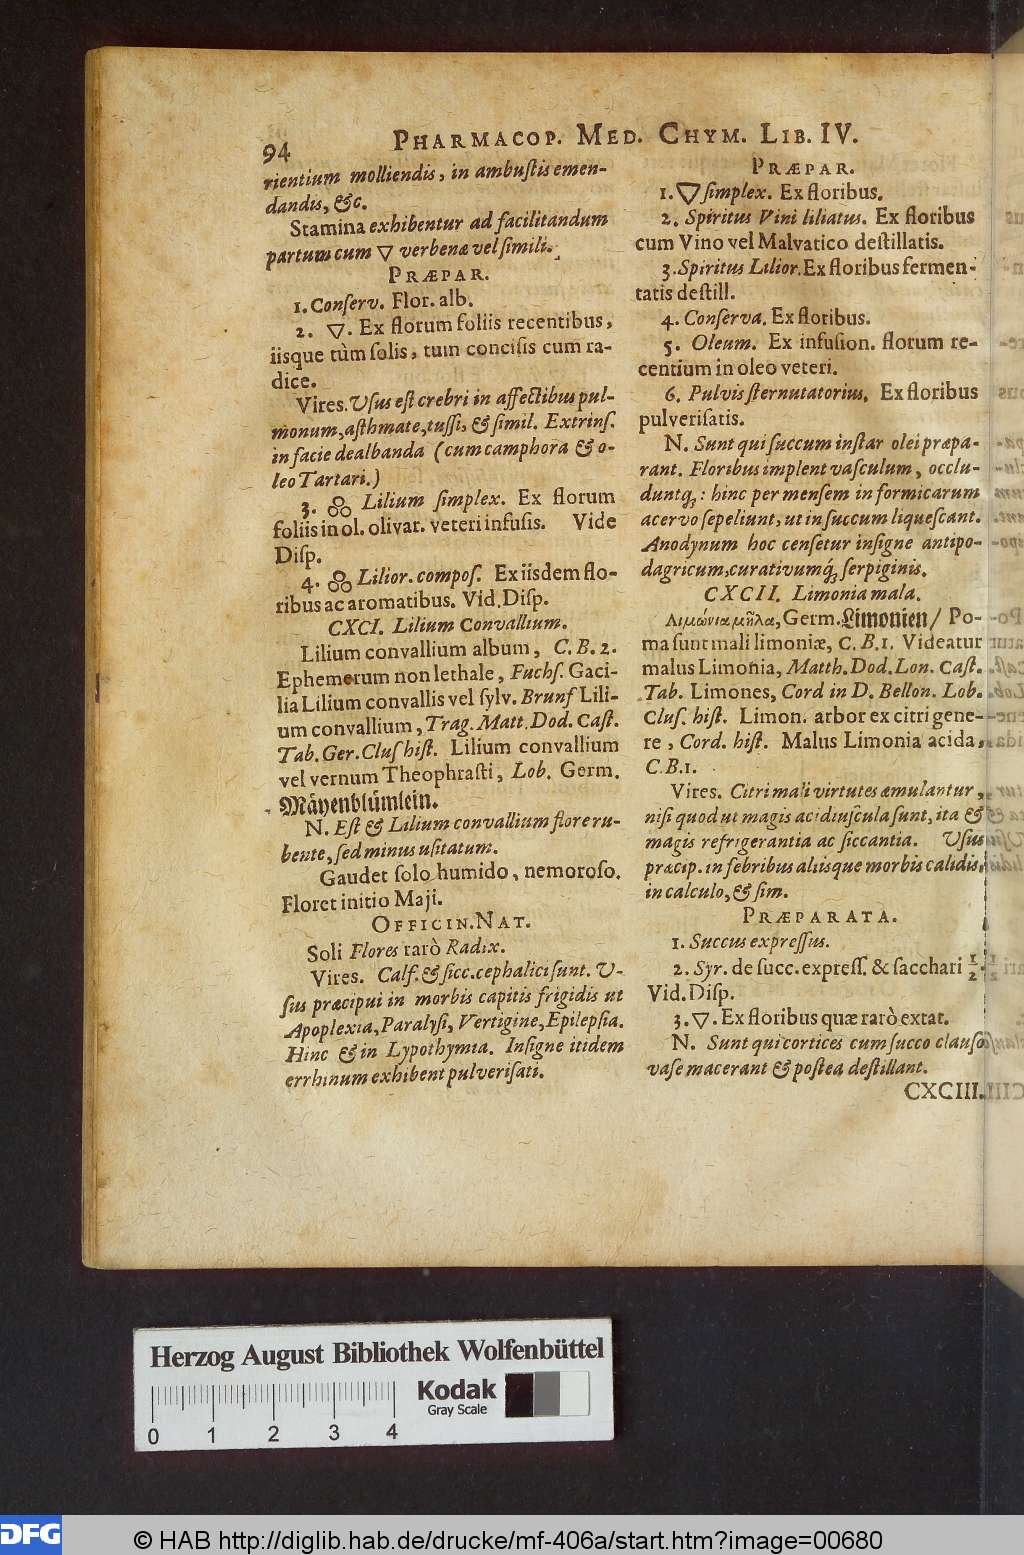 94
PHARMACOP. MED. CHYM. LIB. IV.
rientium molliendis, in ambuſtis emen-
dandis, &c.
Stamina exhibentur ad facilitandum
partum cum ▽ verbenæ vel ſimili.
PRÆPAR.
1. Conſerv. Flor. alb.
2. ▽. Ex florum foliis recentibus,
iisque tùm ſolis, tum conciſis cum ra-
dice.
Vires. Uſus eſt crebri in affectibus pul-
monum, aſthmate, tuſſi, & ſimil. Extrinſ.
in facie dealbanda (cum camphora & o-
leo Tartari.)
3. Lilium ſimplex. Ex florum
foliis in ol. olivar. veteri infuſis. Vide
Diſp.
4. Lilior. compoſ. Ex iisdem flo-
ribus ac aromatibus. Vid. Diſp.
CXCI. Lilium Convallium.
Lilium convallium album, C. B. 2.
Ephemerum non lethale, Fuchſ. Gaci-
lia Lilium convallis vel ſylv. Brunf Lili-
um convallium, Trag. Matt. Dod. Caſt.
Tab. Ger. Cluſ hiſt. Lilium convallium
vel vernum Theophraſti, Lob. Germ.
Mäyenblümlein.
N. Eſt & Lilium convallium flore ru-
bente, ſed minus uſitatum.
Gaudet ſolo humido, nemoroſo.
Floret initio Maji.
OFFICIN. NAT.
Soli Flores rarò Radix.
Vires. Calf. & ſicc. cephalici ſunt. U-
ſus præcipui in morbis capitis frigidis ut
Apoplexia, Paralyſi, Vertigine, Epilepſia.
Hinc & in Lypothymia. Inſigne itidem
errhinum exhibent pulveriſati.
PRÆPAR.
1. ▽ ſimplex. Ex floribus.
2. Spiritus Vini liliatus. Ex floribus
cum Vino vel Malvatico deſtillatis.
3. Spiritus Lilior. Ex floribus fermen-
tatis deſtill.
4. Conſerva. Ex floribus.
5. Oleum. Ex infuſion. florum re-
centium in oleo veteri.
6. Pulvis ſternutatorius. Ex floribus
pulveriſatis.
N. Sunt qui ſuccum inſtar olei præpa-
rant. Floribus implent vaſculum, occlu-
duntq́;: hinc per menſem in formicarum
acervo ſepeliunt, ut in ſuccum liqueſcant.
Anodynum hoc cenſetur inſigne antipo-
dagricum, curativumq́; ſerpiginis.
CXCII. Limonia mala.
Λιμώνια μῆλα, Germ. Limonien / Po-
ma ſunt mali limoniæ, C. B. 1. Videatur
malus Limonia, Matth. Dod. Lon. Caſt.
Tab. Limones, Cord in D. Bellon. Lob.
Cluſ. hiſt. Limon. arbor ex citri gene-
re, Cord. hiſt. Malus Limonia acida,
C. B. 1.
Vires. Citri mali virtutes æmulantur,
niſi quod ut magis acidiuſcula ſunt, ita &
magis refrigerantia ac ſiccantia. Uſus
præcip. in febribus aliisque morbis calidis,
in calculo, & ſim.
PRÆPARATA.
1. Succus expreſſus.
2. Syr. de ſucc. expreſſ. & ſacchari ½.
Vid. Diſp.
3. ▽. Ex floribus quæ rarò extat.
N. Sunt qui cortices cum ſucco clauſo
vaſe macerant & poſtea deſtillant.
CXCIII.
Herzog August Bibliothek Wolfenbüttel
Kodak
Gray Scale
0 1 2 3 4
DFG
© HAB http://diglib.hab.de/drucke/mf-406a/start.htm?image=00680